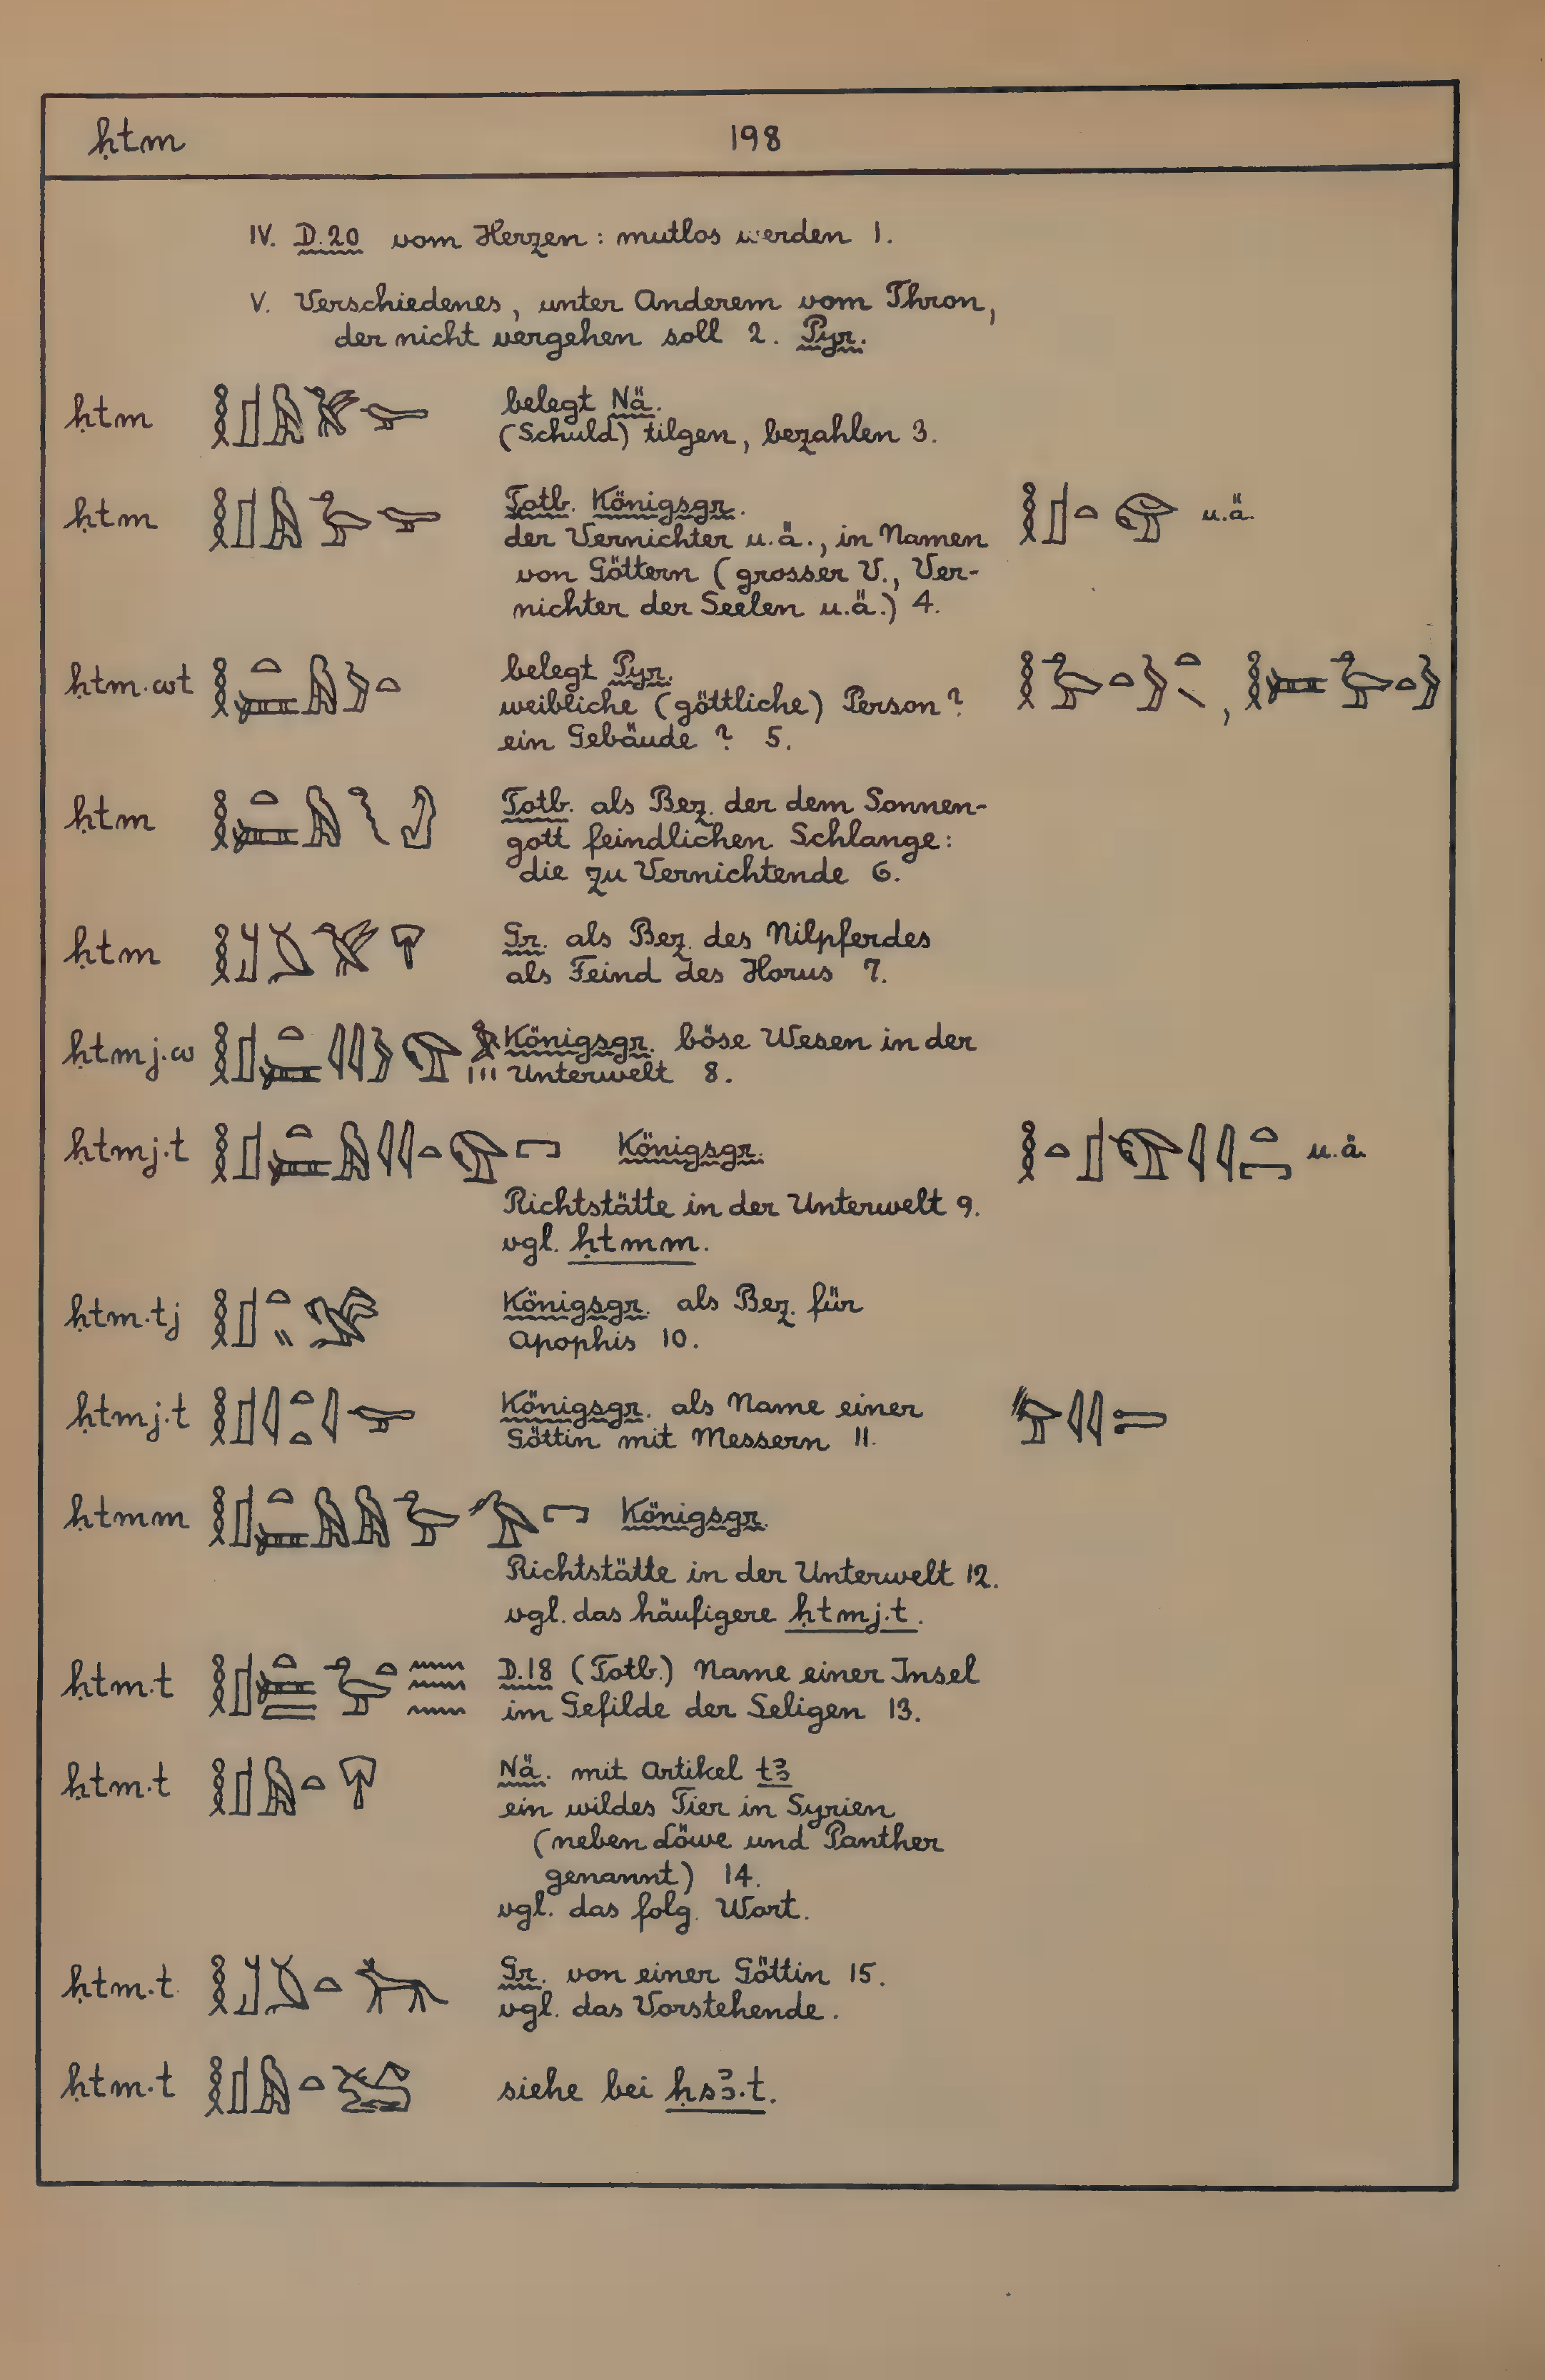 ḥtm 198
IV. D.20 vom Herzen: mutlos werden 1.
V. Verschiedenes, unter Anderem vom Thron,
der nicht vergehen soll 2. Pyr.
ḥtm belegt Nä.
(Schuld) tilgen, bezahlen 3.
ḥtm Totb. Königsgr. u.ä.
der Vernichter u.ä., in Namen
von Göttern (grosser V., Ver-
nichter der Seelen u.ä.) 4.
ḥtm.wt belegt Pyr.
weibliche (göttliche) Person?
ein Gebäude? 5.
ḥtm Totb. als Bez. der dem Sonnen-
gott feindlichen Schlange:
die zu Vernichtende 6.
ḥtm Gr. als Bez. des Nilpferdes
als Feind des Horus 7.
ḥtmj.w Königsgr. böse Wesen in der
Unterwelt 8.
ḥtmj.t Königsgr. u.ä.
Richtstätte in der Unterwelt 9.
vgl. ḥtmm.
ḥtm.tj Königsgr. als Bez. für
Apophis 10.
ḥtmj.t Königsgr. als Name einer
Göttin mit Messern 11.
ḥtmm Königsgr.
Richtstätte in der Unterwelt 12.
vgl. das häufigere ḥtmj.t.
ḥtm.t D.18 (Totb.) Name einer Insel
im Gefilde der Seligen 13.
ḥtm.t Nä. mit Artikel tꜣ
ein wildes Tier in Syrien
(neben Löwe und Panther
genannt) 14.
vgl. das folg. Wort.
ḥtm.t Gr. von einer Göttin 15.
vgl. das Vorstehende.
ḥtm.t siehe bei ḥsꜣ.t.